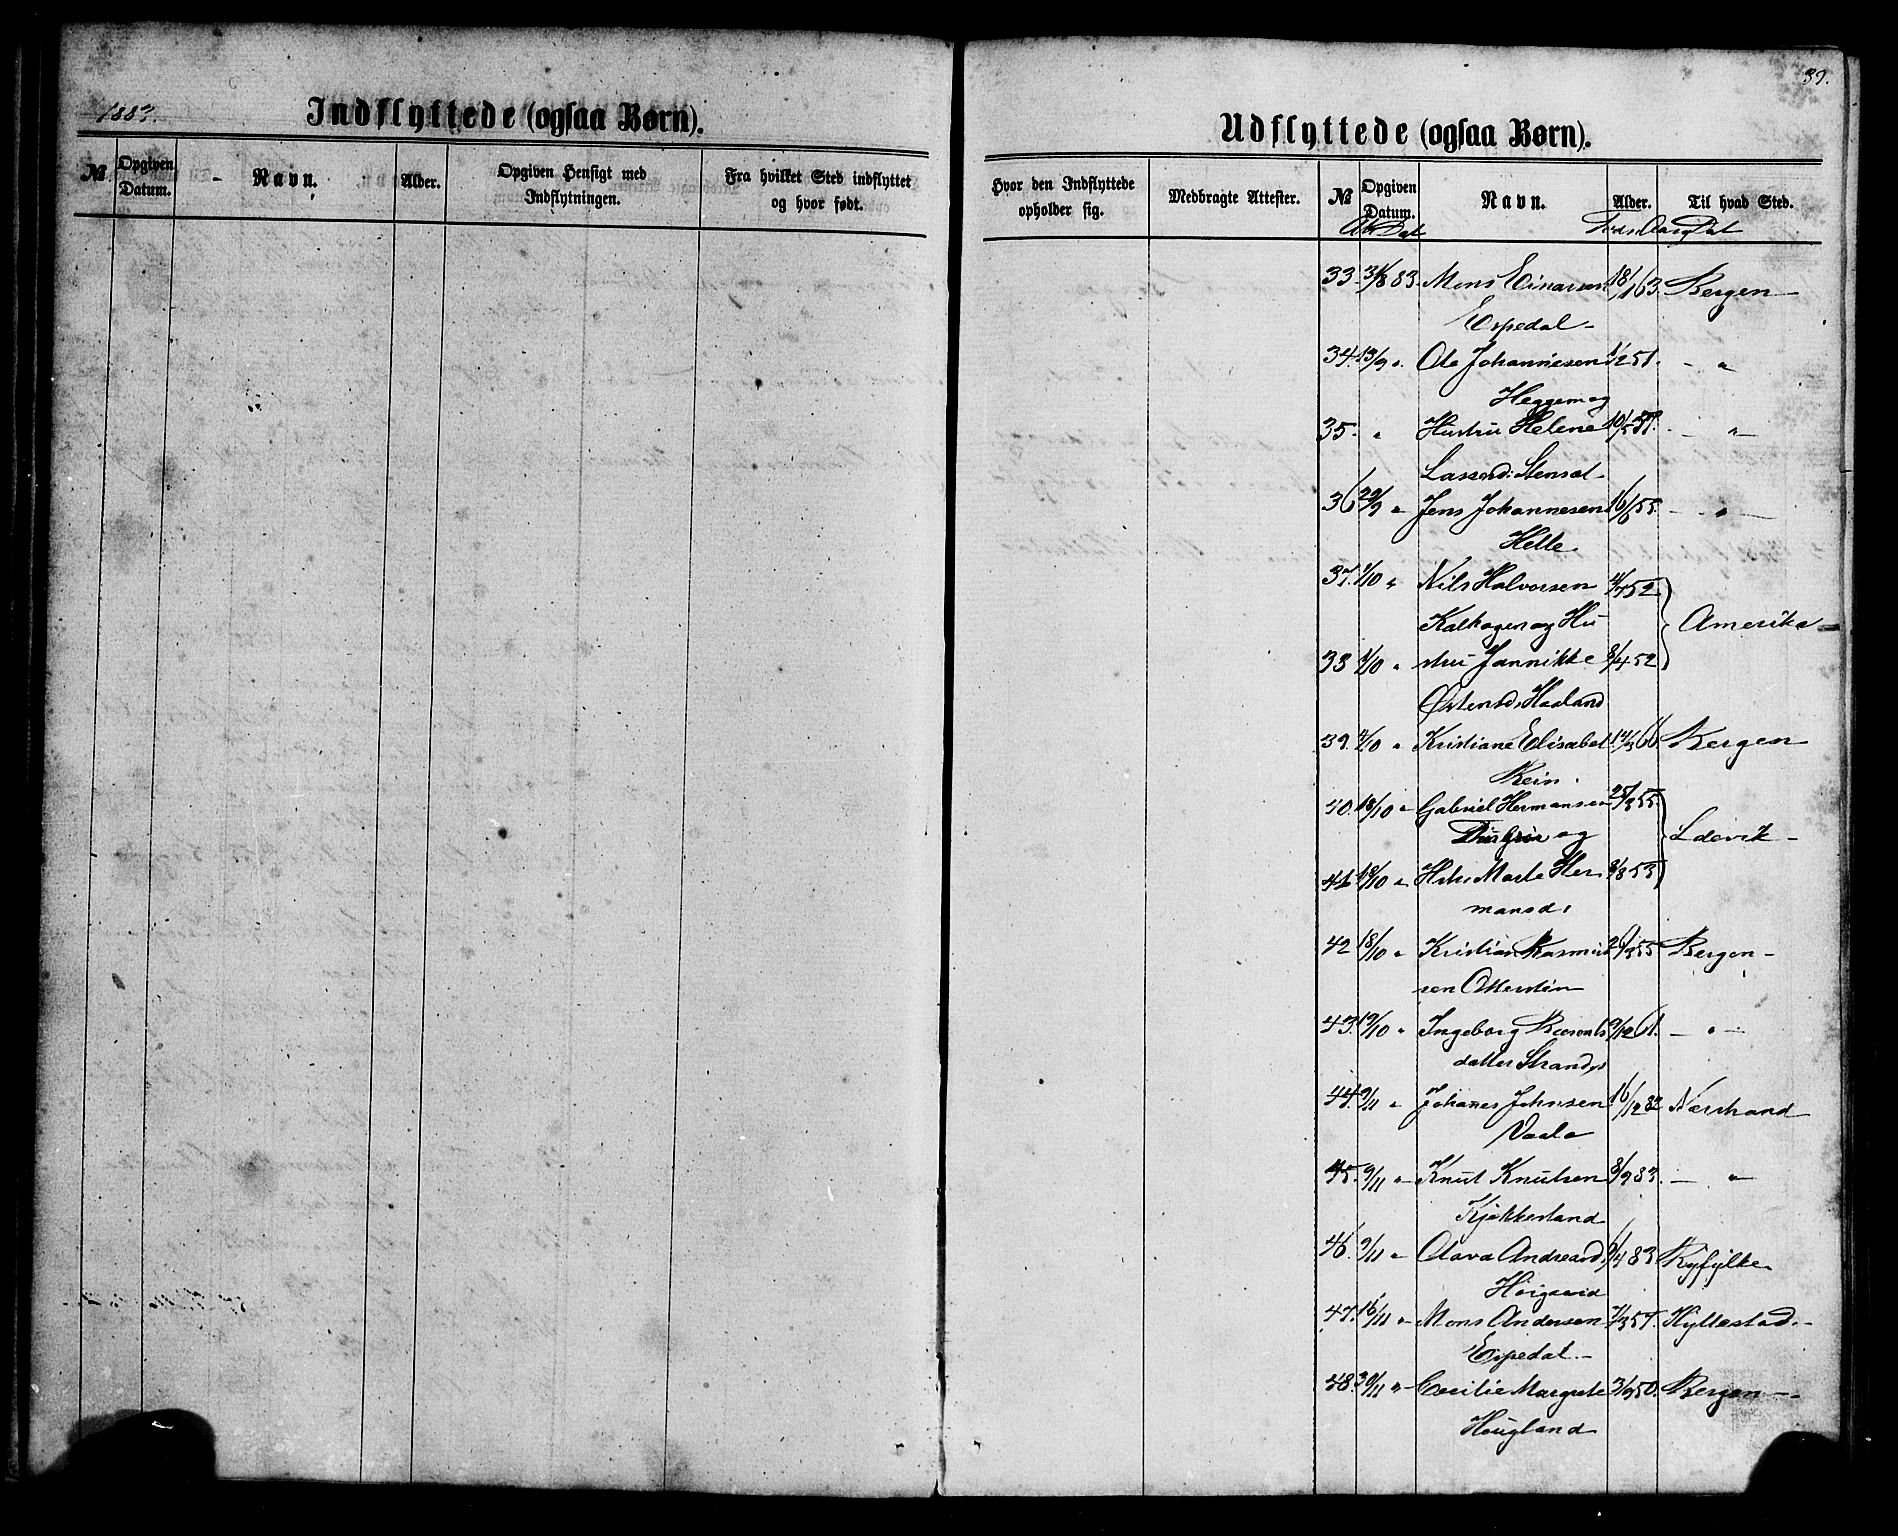 1883.
Indflyttede (ogsaa Børn).
№ Opgiven Datum. Navn. Alder. Opgiven Hensigt med Indflytningen. Fra hvilket Sted indflyttet og hvor født.
39.
Udflyttede (ogsaa Børn).
Hvor den Indflyttede opholder sig. Medbragte Attester. № Opgiven Datum. Navn. Alder. Til hvad Sted.
33. 31/8 83. Mons Einarsen 18/1 63. Bergen
Espedal
34. 13/9 " Ole Johannesen 1/2 51. — " 
Heggem og
35. " Hustru Helene 10/5 59. — " —
Lassesd: Stensæt
36 29/9 " Jens Johannesen 16/6 55. — " —
Helle
37. 1/10 " Nils Halvorsen 11/7 52.
Kalhagen og Hu
Amerika
38 1/10 " stru Jannikke 8/4 52
Østensd: Haaland
39. 2/10 " Kristiane Elisabet 14/3 66. Bergen
Rein.
40. 18/10 " Gabriel Hermansen 25/3 55.
og
Ldevik
41 18/10 " Hstr. Marte Her 8/8 53
mansd:
42 18/10 " Kristian Rasmus 2/3 55 Bergen
sen Otterstein
43. 19/10 " Ingeborg 9/12 61. — " —
datter Strand
44. 9/11 " Johanes Johnsen 16/12 82 Nerstrand
Vaala
45. 9/11 " Knut Knutsen 8/9 83. — "
Kjøkkesland
46. 9/11 " Olava Andreasd. 9/4 83. Ryfylke
Høigaard
47. 16/11 " Mons Andersen 7/3 57. Hyllestad.
Espedal.
48. 30/11 " Cecilie Margrete 3/9 50. Bergen
Hougland